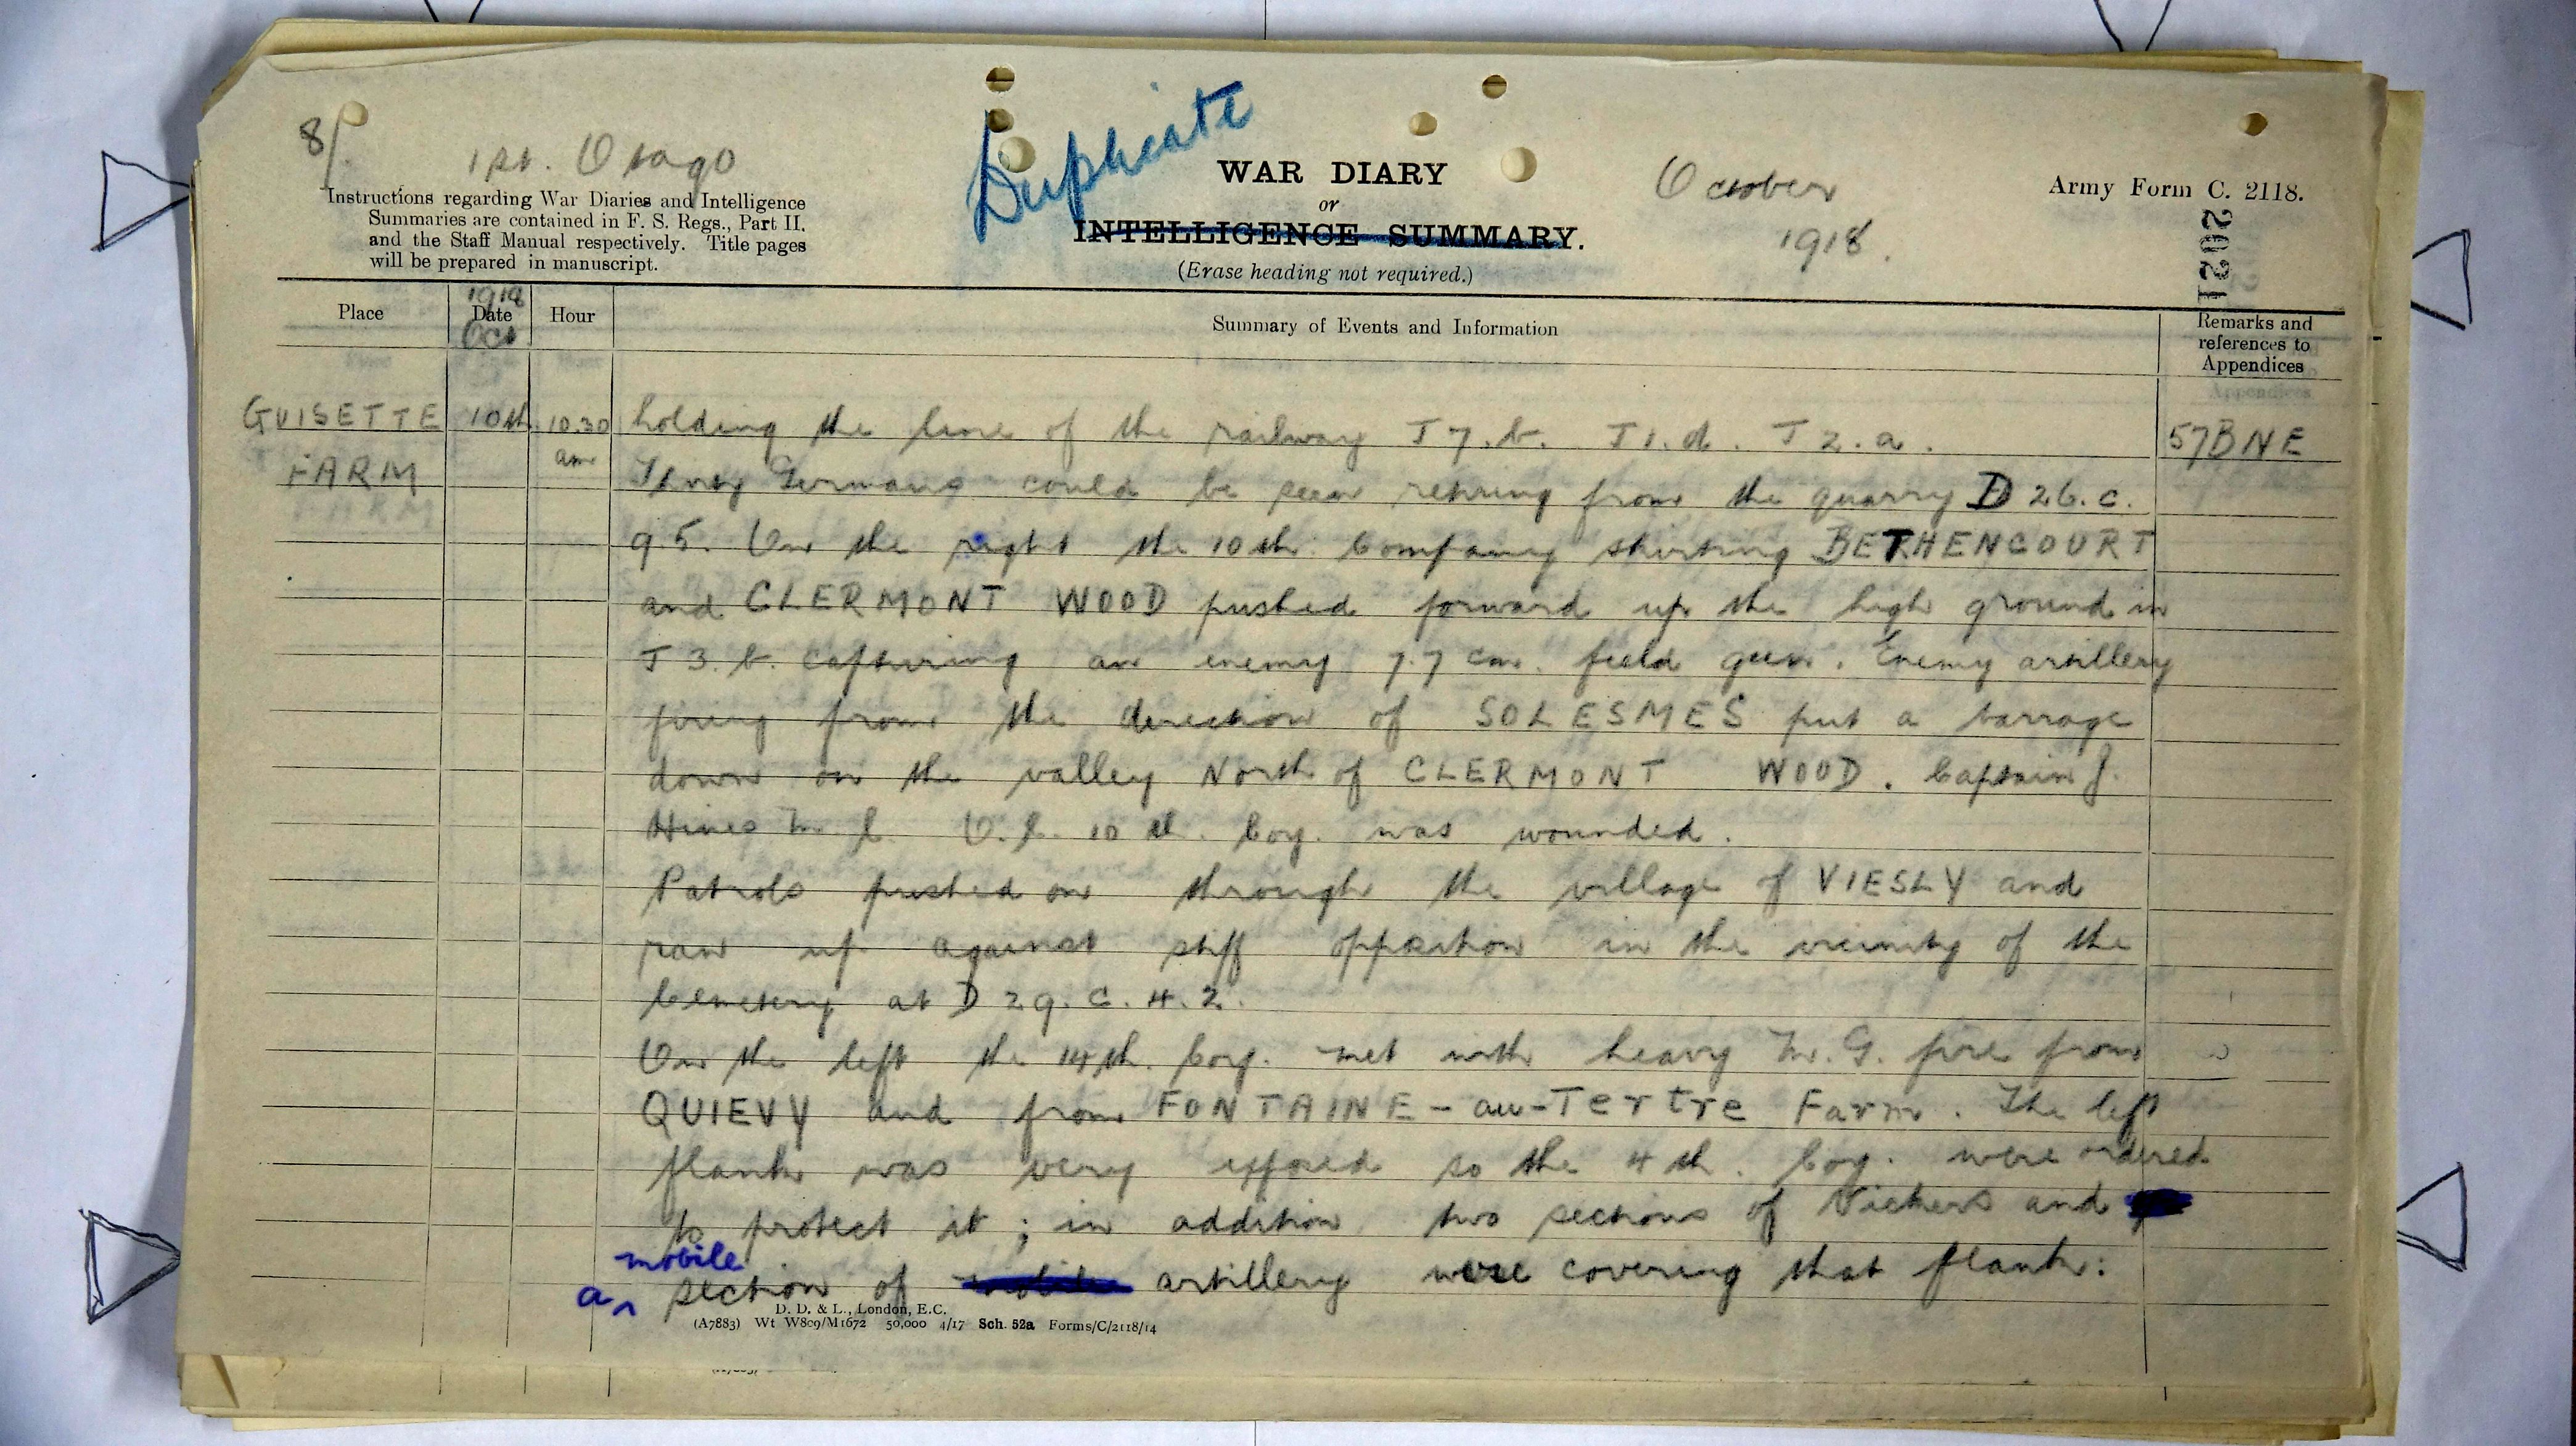 8/.
1st. Otago
Duplicate
WAR DIARY
or
INTELLIGENCE SUMMARY.
(Erase heading not required.)
October
1918.
Army Form C. 2118.
2021
Instructions regarding War Diaries and Intelligence
Summaries are contained in F. S. Regs., Part II.
and the Staff Manual respectively. Title pages
will be prepared in manuscript.
Place
1918
Date
Oct
Hour
Summary of Events and Information
Remarks and
references to
Appendices
GUISETTE 10th 10.30 holding the line of the railway J 7.b. J 1.d. J 2.a. 57BNE
FARM am Thirty Germans could be seen retiring from the quarry D 26.c.
9.5. On the right the 10th Company skirting BETHENCOURT
and CLERMONT WOOD pushed forward up the high ground in
J 3.b. capturing an enemy 7.7 cm. field gun. Enemy artillery
firing from the direction of SOLESMES put a barrage
down on the valley North of CLERMONT WOOD. Captain J.
Hines M.C. O.C. 10th. Coy. was wounded.
Patrols pushed on through the village of VIESLY and
ran up against stiff opposition in the vicinity of the
Cemetery at D 29.c.4.2.
On the left the 14th. Coy. met with heavy M.G. fire from
QUIEVY and from FONTAINE-au-Tertre Farm. The left
flank was very exposed so the 4th. Coy. were ordered
to protect it; in addition two sections of Vickers and
a mobile section of artillery were covering that flank:
D. D. & L., London, E.C.
(A7883) Wt W809/M1672 50,000 4/17 Sch. 52a Forms/C/2118/14